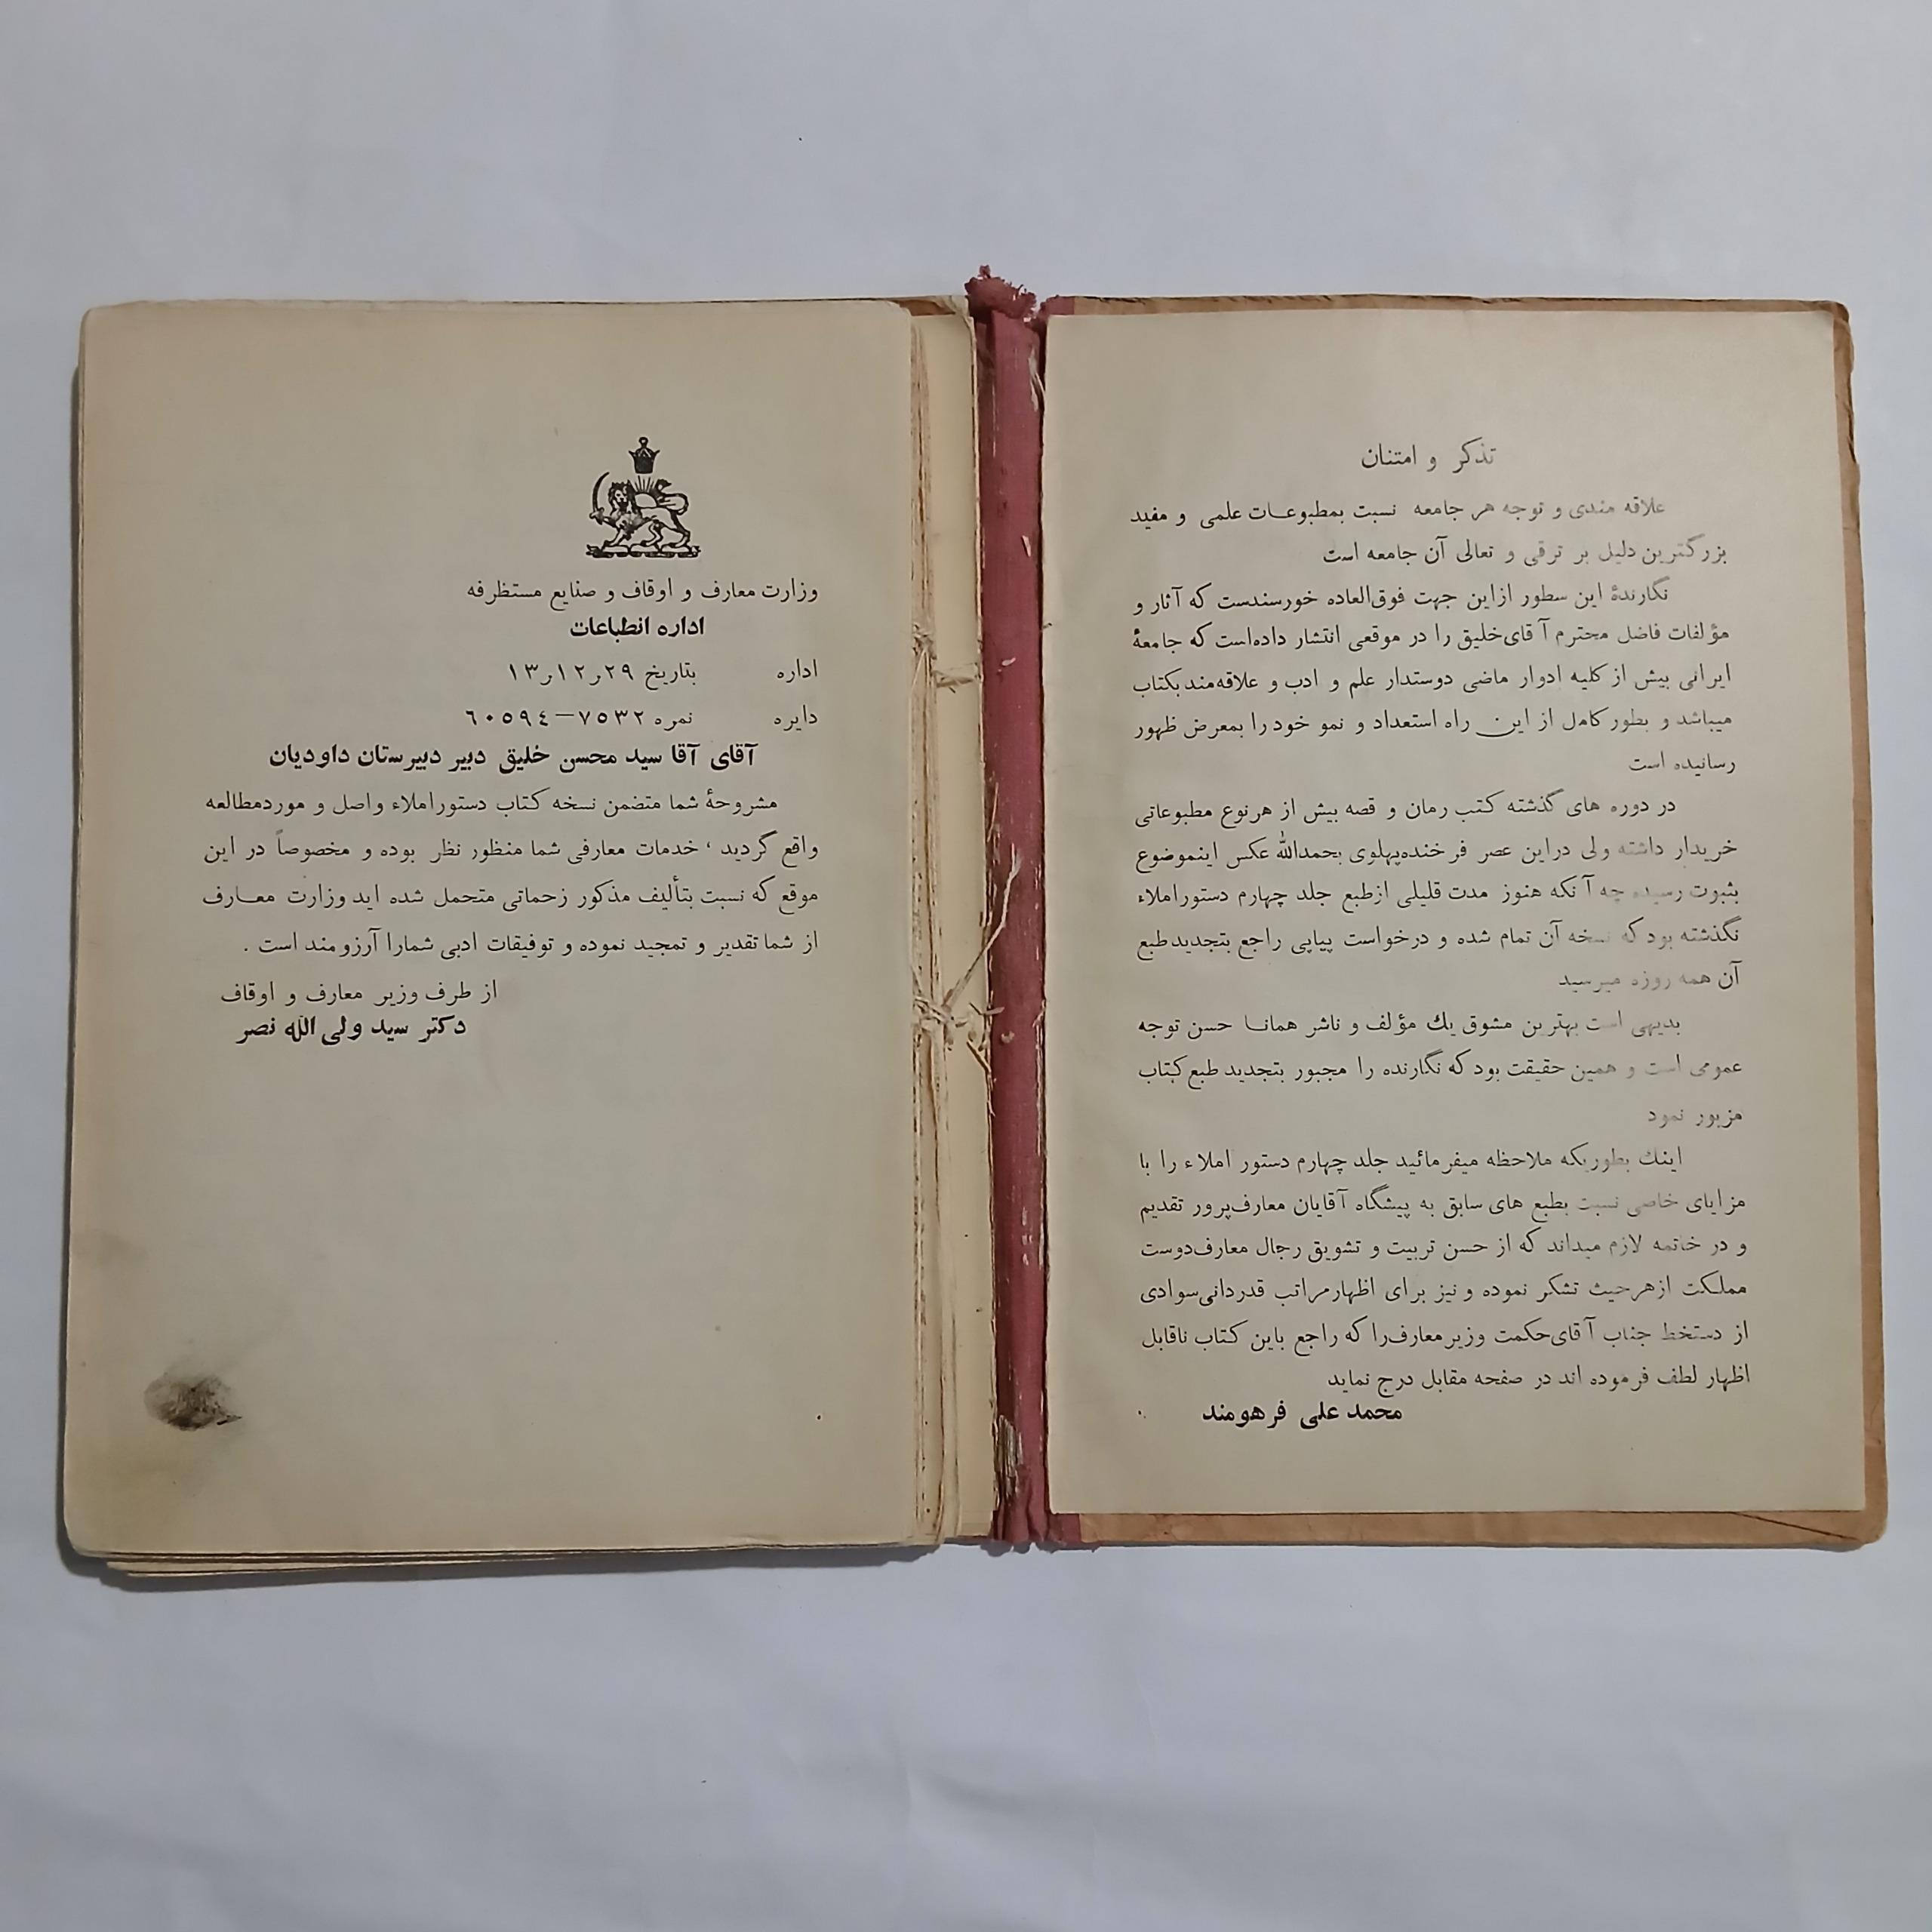 تذکر و امتنان
علاقه مندی و توجه هر جامعه نسبت بمطبوعات علمی و مفید
بزرگترین دلیل بر ترقی و تعالی آن جامعه است
نگارندهٔ این سطور ازاین جهت فوق‌العاده خورسندست که آثار و
مؤلفات فاضل محترم آقای‌خلیق را در موقعی انتشار داده‌است که جامعهٔ
ایرانی بیش از کلیه ادوار ماضی دوستدار علم و ادب و علاقه‌مند بکتاب
میباشد و بطور کامل از این راه استعداد و نمو خود را بمعرض ظهور
رسانیده است
در دوره های گذشته کتب رمان و قصه بیش از هرنوع مطبوعاتی
خریدار داشته ولی دراین عصر فرخنده‌پهلوی بحمدالله عکس اینموضوع
بثبوت رسیده چه آنکه هنوز مدت قلیلی ازطبع جلد چهارم دستوراملاء
نگذشته بود که نسخه آن تمام شده و درخواست پیاپی راجع بتجدیدطبع
آن همه روزه میرسید
بدیهی است بهترین مشوق یك مؤلف و ناشر همانا حسن توجه
عمومی است و همین حقیقت بود که نگارنده را مجبور بتجدید طبع کتاب
مزبور نمود
اینك بطوریکه ملاحظه میفرمائید جلد چهارم دستور املاء را با
مزایای خاصی نسبت بطبع های سابق به پیشگاه آقایان معارف‌پرور تقدیم
و در خاتمه لازم میداند که از حسن تربیت و تشویق رجال معارف‌دوست
مملکت ازهرحیث تشکر نموده و نیز برای اظهارمراتب قدردانی‌سوادی
از دستخط جناب آقای‌حکمت وزیرمعارف‌را که راجع باین کتاب ناقابل
اظهار لطف فرموده اند در صفحه مقابل درج نماید
محمد علی فرهومند
وزارت معارف و اوقاف و صنایع مستظرفه
اداره انطباعات
اداره بتاریخ ۲۹ر۱۲ر۱۳
دایره نمره ۷۵۳۲–۶۰۵۹٤
آقای آقا سید محسن خلیق دبیر دبیرستان داودیان
مشروحهٔ شما متضمن نسخه کتاب دستوراملاء واصل و موردمطالعه
واقع گردید ، خدمات معارفی شما منظور نظر بوده و مخصوصاً در این
موقع که نسبت بتألیف مذکور زحماتی متحمل شده اید وزارت معارف
از شما تقدیر و تمجید نموده و توفیقات ادبی شمارا آرزومند است .
از طرف وزیر معارف و اوقاف
دکتر سید ولی الله نصر